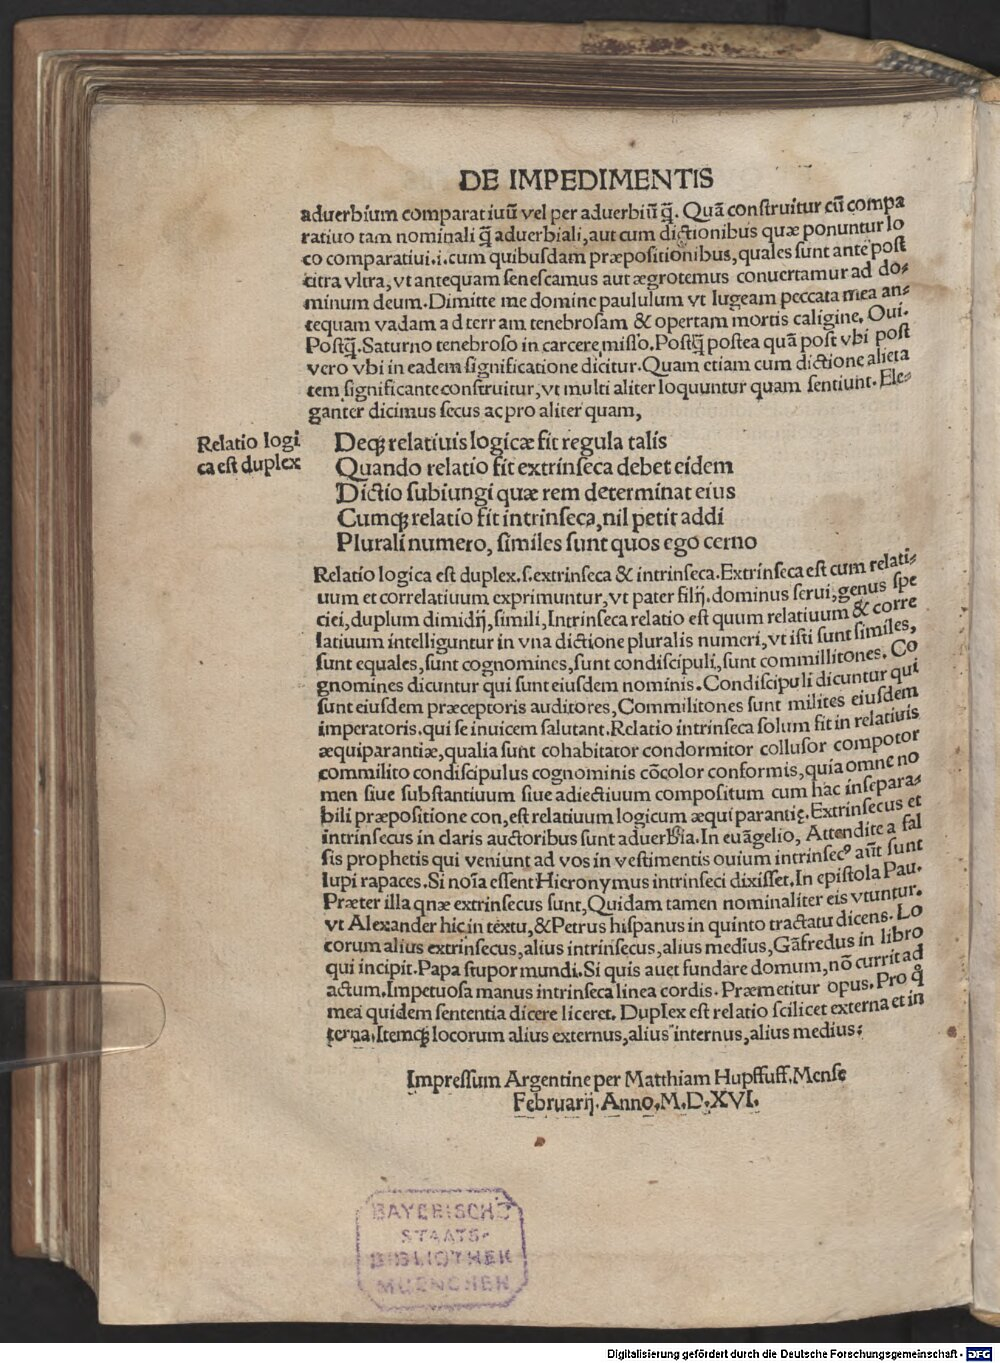 DE IMPEDIMENTIS
aduerbium comparatiuū vel per aduerbiū q̄. Quā construitur cū compa
ratiuo tam nominali q̄ aduerbiali, aut cum dictionibus quæ ponuntur lo
co comparatiui .i. cum quibusdam præpositionibus, quales sunt ante post
citra vltra, vt antequam senescamus aut ægrotemus conuertamur ad do⸗
minum deum. Dimitte me domine paululum vt lugeam peccata mea an⸗
tequam vadam ad terram tenebrosam & opertam mortis caligine. Oui.
Postq̄. Saturno tenebroso in carcere misso. Postq̄ postea quā post vbi post
vero vbi in eadem significatione dicitur. Quam etiam cum dictione alieta
tem significante construitur, vt multi aliter loquuntur quam sentiunt. Ele⸗
ganter dicimus secus ac pro aliter quam,
Relatio logi
ca est duplex
Deqꝫ relatiuis logicæ fit regula talis
Quando relatio fit extrinseca debet eidem
Dictio subiungi quæ rem determinat eius
Cumqꝫ relatio fit intrinseca, nil petit addi
Plurali numero, similes sunt quos ego cerno
Relatio logica est duplex .s. extrinseca & intrinseca. Extrinseca est cum relati⸗
uum et correlatiuum exprimuntur, vt pater filij. dominus serui, genus spe
ciei, duplum dimidij, simili, Intrinseca relatio est quum relatiuum & corre
latiuum intelliguntur in vna dictione pluralis numeri, vt isti sunt similes,
sunt equales, sunt cognomines, sunt condiscipuli, sunt commillitones. Co
gnomines dicuntur qui sunt eiusdem nominis. Condiscipuli dicuntur qui
sunt eiusdem præceptoris auditores, Commilitones sunt milites eiusdem
imperatoris. qui se inuicem salutant. Relatio intrinseca solum fit in relatiuis
æquiparantiæ, qualia sunt cohabitator condormitor collusor compotor
commilito condiscipulus cognominis cōcolor conformis, quia omne no
men siue substantiuum siue adiectiuum compositum cum hac insepara⸗
bili præpositione con, est relatiuum logicum æquiparantię. Extrinsecus et
intrinsecus in claris auctoribus sunt aduerbia. In euāgelio, Attendite a fal
sis prophetis qui veniunt ad vos in vestimentis ouium intrinsecꝰ aūt sunt
lupi rapaces. Si noīa essent Hieronymus intrinseci dixisset. In epistola Pau.
Præter illa qnæ extrinsecus sunt, Quidam tamen nominaliter eis vtuntur.
vt Alexander hic in textu, & Petrus hispanus in quinto tractatu dicens. Lo
corum alius extrinsecus, alius intrinsecus, alius medius, Gāfredus in libro
qui incipit. Papa stupor mundi. Si quis auet fundare domum, nō currit ad
actum. Impetuosa manus intrinseca linea cordis. Præmetitur opus. Pro q̊
mea quidem sententia dicere liceret. Duplex est relatio scilicet externa et in
terna. Itemqꝫ locorum alius externus, alius internus, alius medius:
Impressum Argentine per Matthiam Hupffuff. Mense
Februarij. Anno. M. D. XVI.
BAYERISCHE
STAATS-
BIBLIOTHEK
MUENCHEN
Digitalisierung gefördert durch die Deutsche Forschungsgemeinschaft - DFG